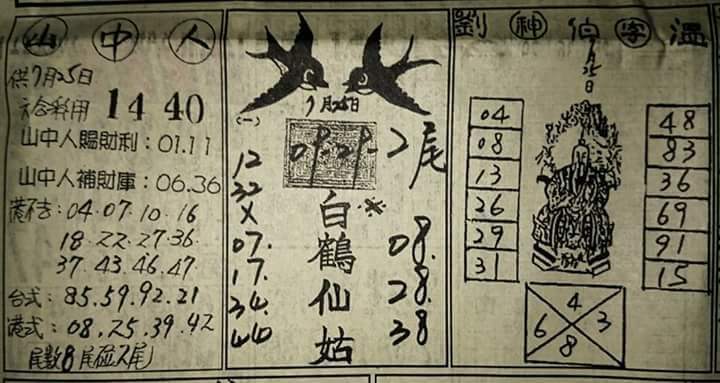 山中人
供7月25日
14 40
山中人賜財利：01.11
山中人補財庫：06.36
04.07.10.16
18.22.27.36.
37.43.46.47
台式：85.59.92.21
港式：08.25.39.42
尾數8尾碰2尾
7月25日
(一)
2尾
12
32
X
07.
17.
34.
44
白鶴仙姑
08.
28.
38
劉神伯字溫
7月25日
04
08
13
26
29
31
48
83
36
69
91
15
4
6
3
8